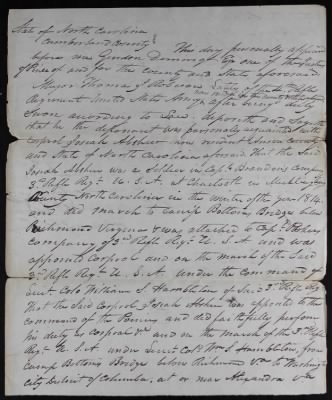 State of North Carolina
Cumberland County
This day personally appeared
before me Gurdon Deming Esq one of the Justices
of Peace in and for the county and State aforesaid
Major Thomas J. Robeson
Regiment United States Army after being duly
Sworn according to Law, deposeth and Sayeth
that he the deponent was personally acquainted with
corpral Josiah Alsher now resident county
and State of North Carolina aforesaid that the Said
Josiah Alsher was a Soldier in Capt Brandons company
3d Rifle Regt U. S. A. at Charlotte in Mecklinburg
County North Carolina in the winter of the year 1814
and did march to Camp Bottoms Bridge below
Richmond Virginia & was attached to Capt
company of 3d Rifle Regt U. S. A and was
appointd corpral and on the march of the Said
3d Rifle Regt U. S. A. under the command of
Lieut Colo William S Hambleton of Said 3d Rifle Regt
that the Said corpral Josiah Alsher was appointd to the
command of the and did faithfully perform
his duty as corpral &c and on the march of the 3d Rifle
Regt U. S. A under Lieut Colo Wm S. Hambleton, from
camp Bottoms Bridge below Richmond Va to Washington
city District of Columbia, at or near Alexandria Va